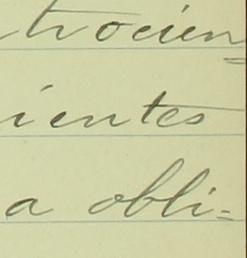 trocien
ientes
a obli=